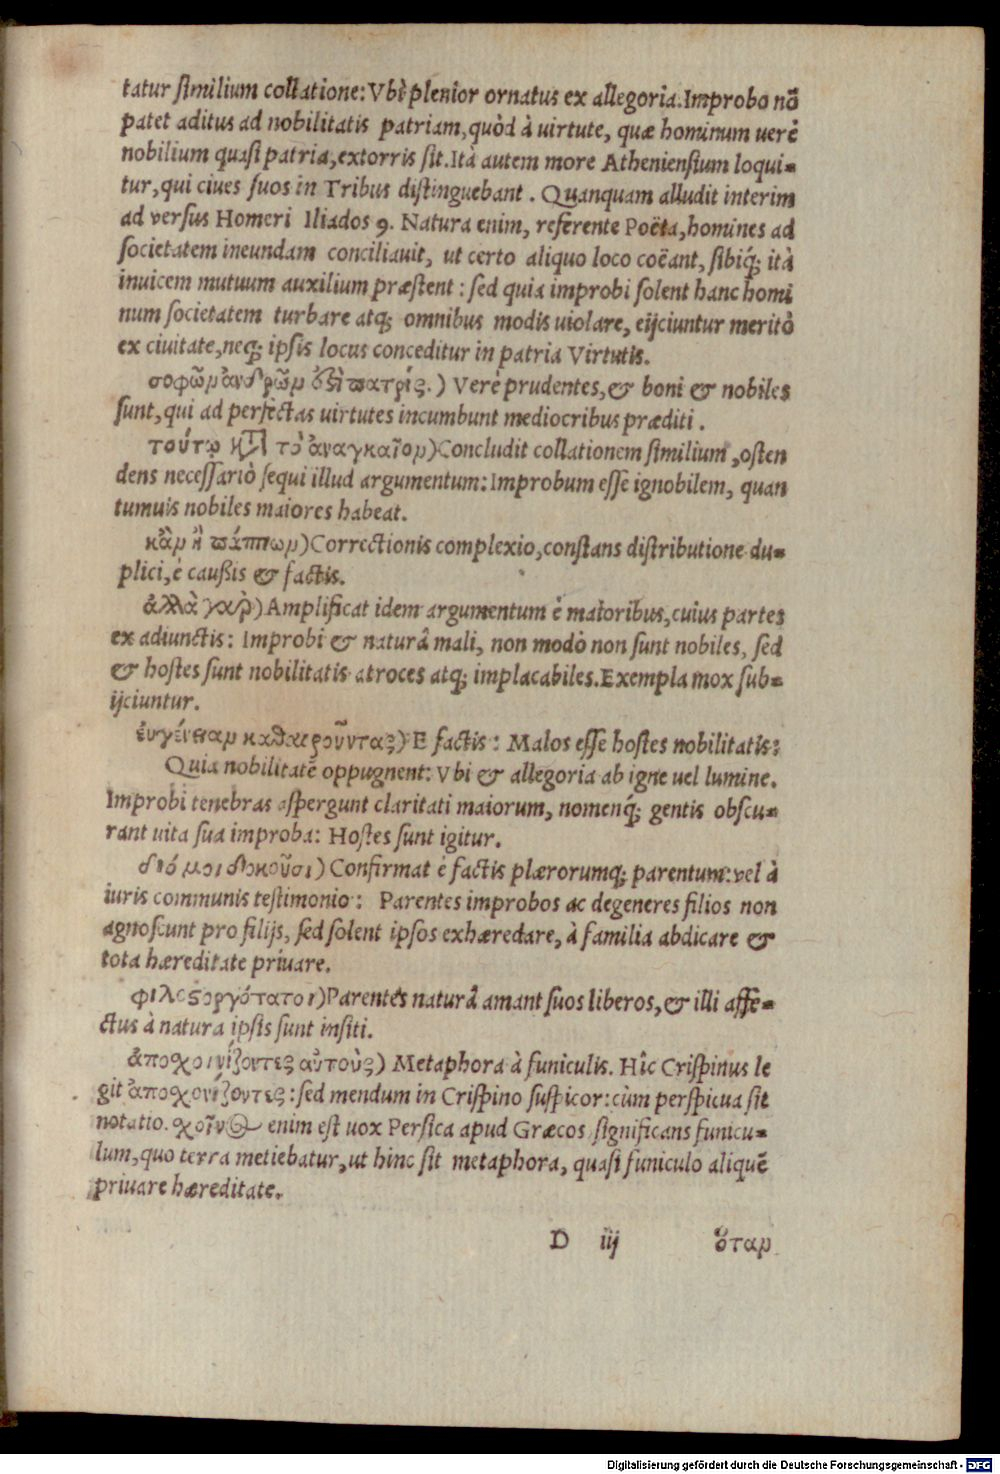 tatur similium collatione: Vbi plenior ornatus ex allegoria. Improbo nō
patet aditus ad nobilitatis patriam, quòd à uirtute, quæ hominum uerè
nobilium quasi patria, extorris sit. Ità autem more Atheniensium loqui=
tur, qui ciues suos in Tribus distinguebant. Quanquam alludit interim
ad versus Homeri Iliados 9. Natura enim, referente Poëta, homines ad
societatem ineundam conciliauit, ut certo aliquo loco coëant, sibiq́; ità
inuicem mutuum auxilium præstent: sed quia improbi solent hanc homi
num societatem turbare atq; omnibus modis uiolare, eijciuntur meritò
ex ciuitate, neq; ipsis locus conceditur in patria Virtutis.
σοφῶν ἀνδρῶν ὅξι πατρίς.) Verè prudentes, & boni & nobiles
sunt, qui ad perfectas uirtutes incumbunt mediocribus præditi.
τούτῳ τὸ ἀναγκαῖον) Concludit collationem similium, osten
dens necessariò sequi illud argumentum: Improbum esse ignobilem, quan
tumuis nobiles maiores habeat.
κἂν ἢ πάππων) Correctionis complexio, constans distributione du=
plici, è caußis & factis.
ἀλλὰ γὰρ) Amplificat idem argumentum è maioribus, cuius partes
ex adiunctis: Improbi & naturâ mali, non modò non sunt nobiles, sed
& hostes sunt nobilitatis atroces atq; implacabiles. Exempla mox sub=
ijciuntur.
ἐυγένειαν καθαιροῦντας) E factis: Malos esse hostes nobilitatis:
Quia nobilitatē oppugnent: Vbi & allegoria ab igne uel lumine.
Improbi tenebras aspergunt claritati maiorum, nomenq́; gentis obscu=
rant uita sua improba: Hostes sunt igitur.
διό μοι δοκοῦσι) Confirmat è factis plærorumq; parentum: vel à
iuris communis testimonio: Parentes improbos ac degeneres filios non
agnoscunt pro filijs, sed solent ipsos exhæredare, à familia abdicare &
tota hæreditate priuare.
φιλοϛοργότατοι) Parentes naturâ amant suos liberos, & illi affe=
ctus à natura ipsis sunt insiti.
ἀποσχοινίζοντες αὐτοὺς) Metaphora à funiculis. Hîc Crispinus le
git ἀποσχονίζοντες: sed mendum in Crispino suspicor: cùm perspicua sit
notatio. σχοῖνος enim est uox Persica apud Græcos significans funicu=
lum, quo terra metiebatur, ut hinc sit metaphora, quasi funiculo aliquē
priuare hæreditate.
D iij ὅταν
Digitalisierung gefördert durch die Deutsche Forschungsgemeinschaft - DFG